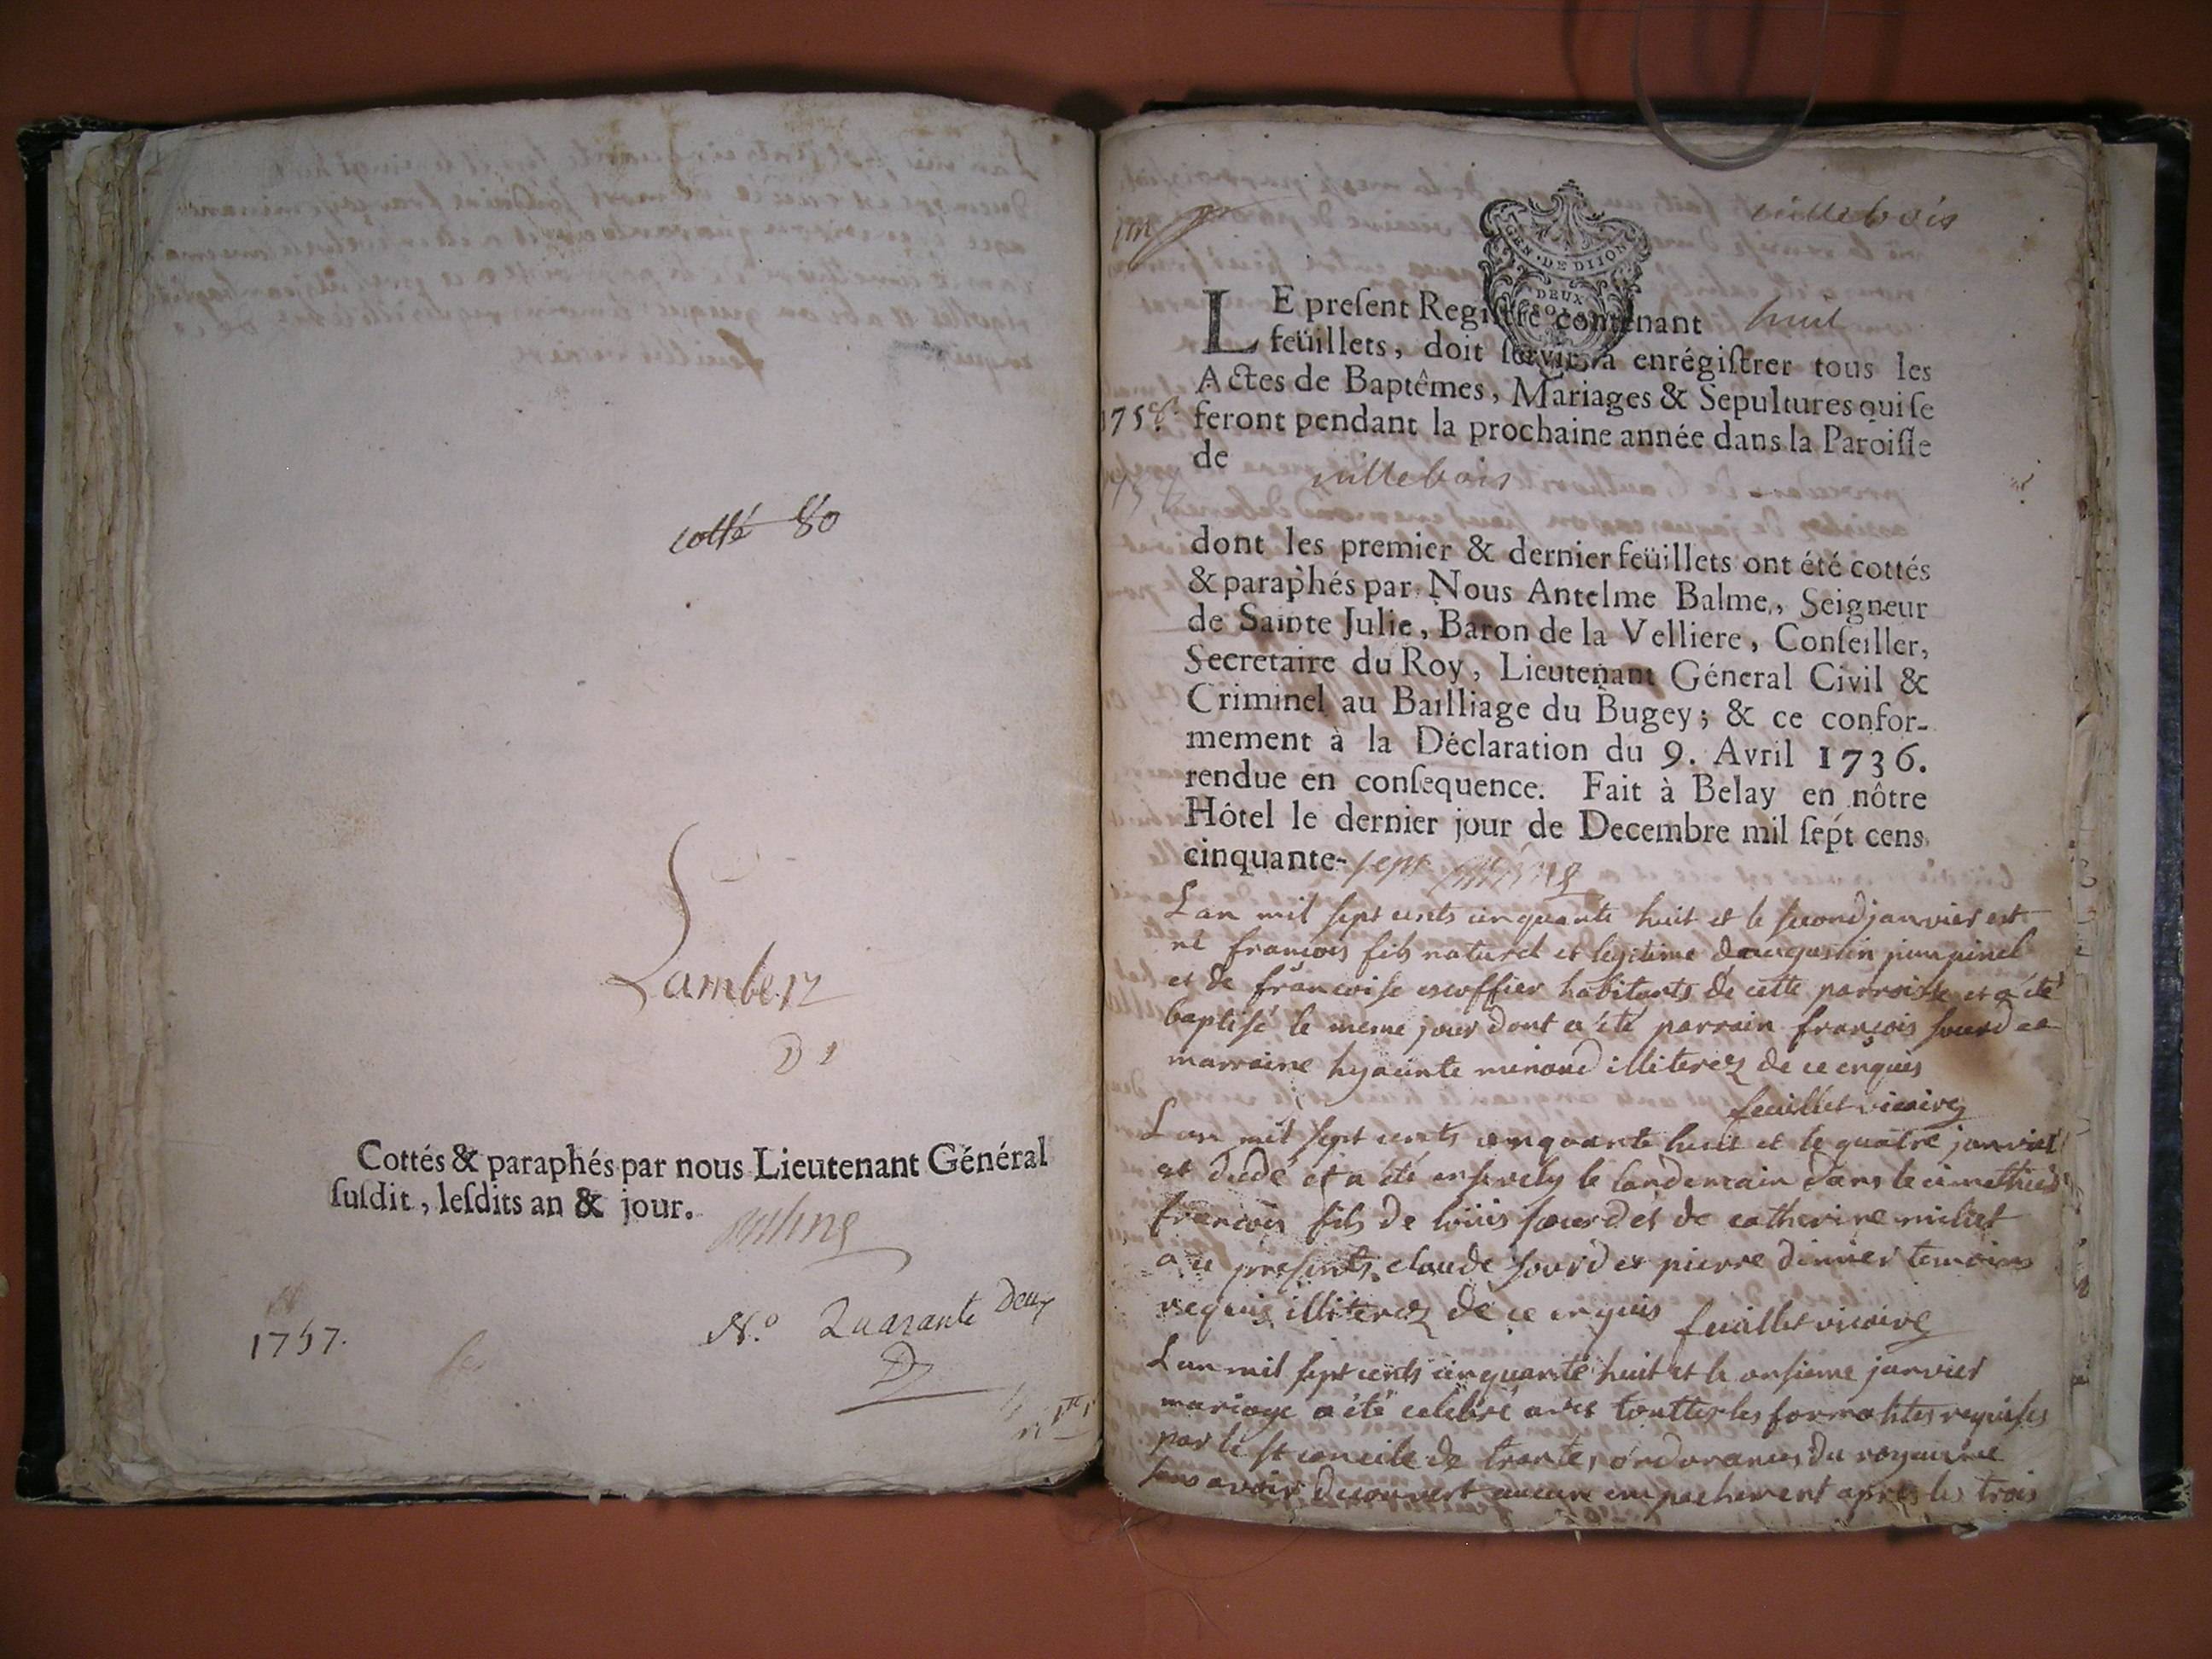 cotté 80
Lambert
Cottés & paraphés par nous Lieutenant Général
ſuſdit, leſdits an & jour.
N.o Quarante Deux
1757.
villebois
GEN. DE DIJON
DEUX
SOLS
LE preſent Regiſtre contenant huit
feüillets, doit ſervir à enrégiſtrer tous les
Actes de Baptêmes, Mariages & Sepultures qui ſe
1758. feront pendant la prochaine année dans la Paroiſſe
de villebois
dont les premier & dernier feüillets ont été cottés
& paraphés par Nous Antelme Balme, Seigneur
de Sainte Julie, Baron de la Velliere, Conſeiller,
Secretaire du Roy, Lieutenant Géneral Civil &
Criminel au Bailliage du Bugey; & ce confor-
mement à la Déclaration du 9. Avril 1736.
rendue en conſequence. Fait à Belay en nôtre
Hôtel le dernier jour de Decembre mil ſept cens
cinquante-sept
Lan mil sept cents cinquante huit et le second janvier est
né francois fils naturel et legitime daugustin
et de francoise escoffier habitants de cette parroisse et a été
baptisé le meme jour dont a été parrain francois sourd et
marraine hyacinte minand illiterez de ce enquis
feuillet vicaire
Lan mil sept cents cinquante huit et le quatre janvier
est dédé et a été ensevely le landemain dans le cimethier
francois fils de loüis sourd et de catherine milliet
a ce presents claude sourd et pierre dinnier temoins
requis illiterez de ce enquis feuillet vicaire
Lan mil sept cents cinquante huit et le onsieme janvier
mariage a été celebré avec touttes les formalites requises
par le st concile de trante, ordonances du royaume
sans avoir decouvert aucun empechement apres les trois